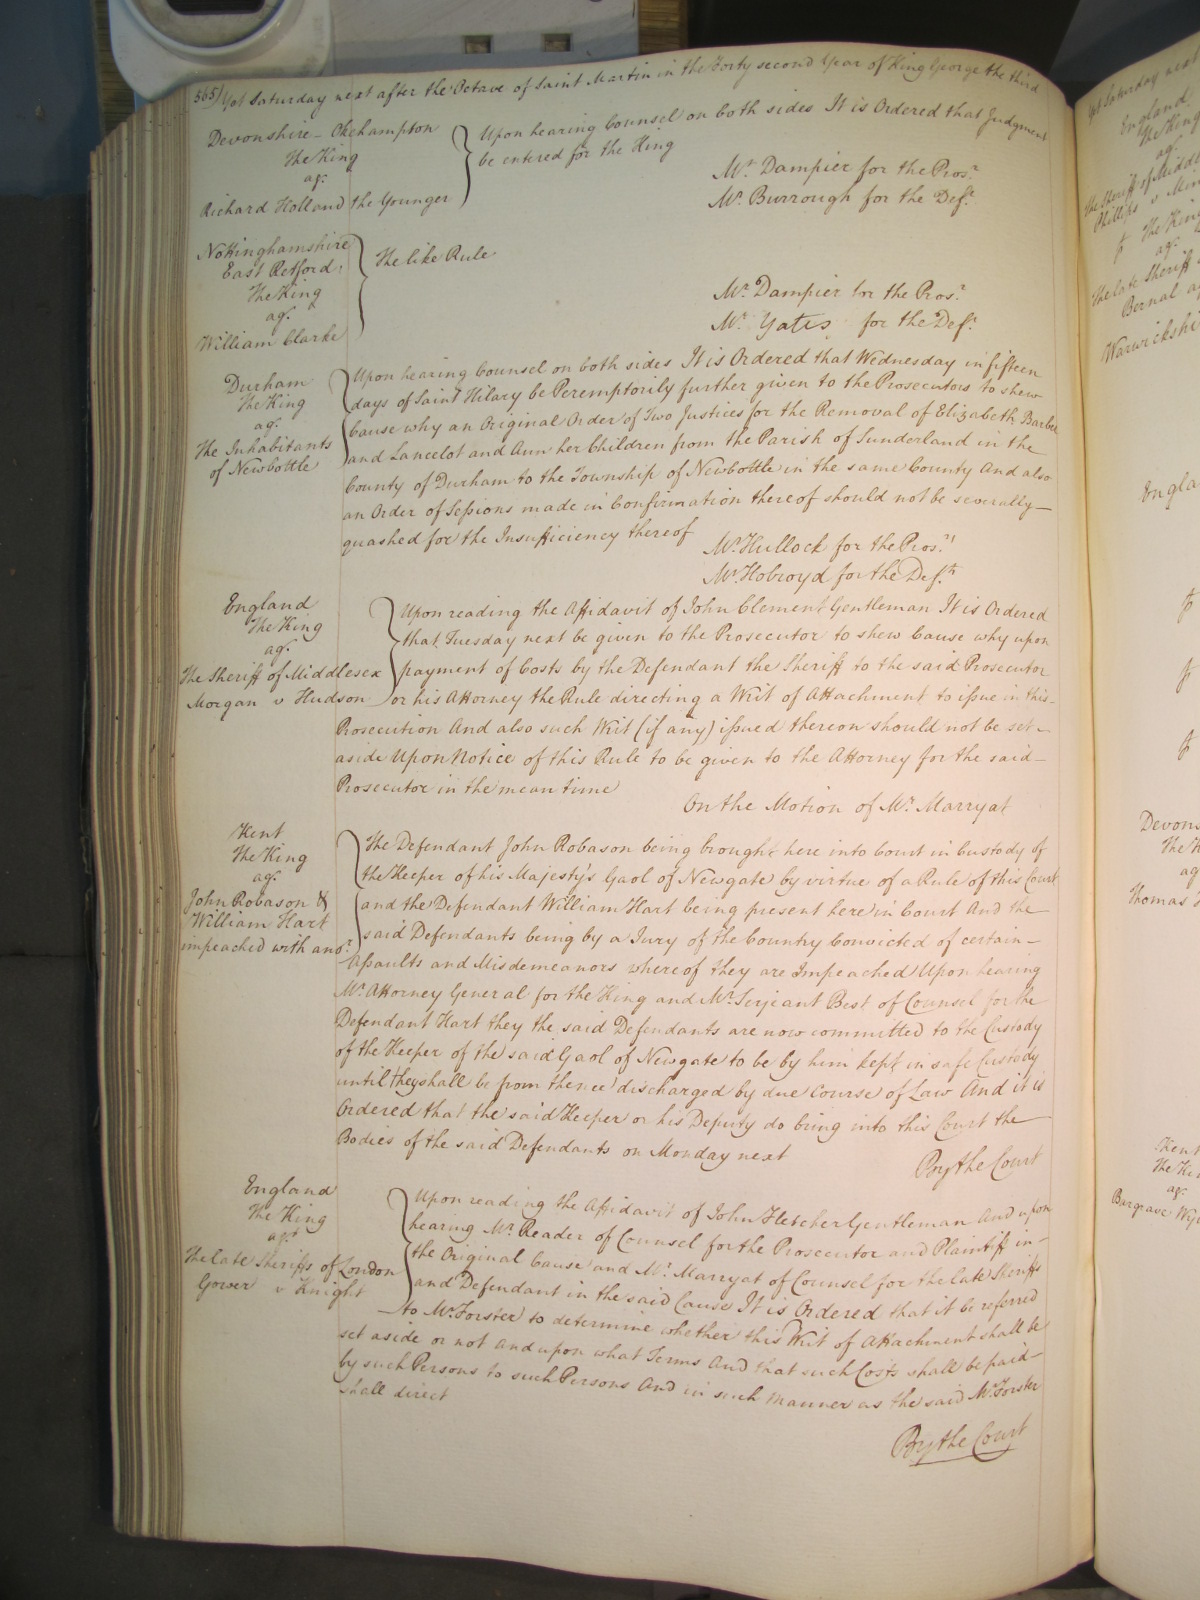 565) Yet Saturday next after the Octave of Saint Martin in the Forty second Year of King George the third
Devonshire – Okehampton
The King
agt.
Richard Holland the Younger
Upon hearing Counsel on both sides It is Ordered that Judgment
be entered for the King
Mr. Dampier for the Prosr.
Mr. Burrough for the Deft.
Nottinghamshire
East Retford
The King
agt.
William Clarke
The like Rule
Mr. Dampier for the Prosr.
Mr. Yates for the Deft.
Durham
The King
agt.
The Inhabitants
of Newbottle
Upon hearing Counsel on both sides It is Ordered that Wednesday in fifteen
days of Saint Hilary be Peremptorily further given to the Prosecutors to shew
Cause why an Original Order of Two Justices for the Removal of Elizabeth Barber
and Lancelot and Ann her Children from the Parish of Sunderland in the
County of Durham to the Township of Newbottle in the same County And also
an Order of Sessions made in Confirmation thereof should not be severally
quashed for the Insufficiency thereof
Mr. Hullock for the Prosrs.
Mr. Holroyd for the Defts.
England
The King
agt.
The Sheriff of Middlesex
Morgan v Hudson
Upon reading the Affidavit of John Clement Gentleman It is Ordered
that Tuesday next be given to the Prosecutor to shew Cause why upon
payment of Costs by the Defendant the Sheriff to the said Prosecutor
or his Attorney the Rule directing a Writ of Attachment to issue in this
Prosecution And also such Writ (if any) issued thereon should not be set
aside Upon Notice of this Rule to be given to the Attorney for the said
Prosecutor in the mean time
On the Motion of Mr. Marryat
Kent
The King
agt.
John Robason &
William Hart
impeached with anor.
The Defendant John Robason being brought here into Court in Custody of
the Keeper of his Majesty's Gaol of Newgate by virtue of a Rule of this Court
and the Defendant William Hart being present here in Court And the
said Defendants being by a Jury of the Country Convicted of certain
Assaults and Misdemeanors whereof they are Impeached Upon hearing
Mr. Attorney General for the King and Mr. Serjeant Best of Counsel for the
Defendant Hart they the said Defendants are now committed to the Custody
of the Keeper of the said Gaol of Newgate to be by him kept in safe Custody
until they shall be from thence discharged by due Course of Law And it is
Ordered that the said Keeper or his Deputy do bring into this Court the
Bodies of the said Defendants on Monday next
By the Court
England
The King
agt.
The late Sheriffs of London
Gower v Knight
Upon reading the Affidavit of John Fletcher Gentleman And upon
hearing Mr. Reader of Counsel for the Prosecutor and Plaintiff in
the Original Cause and Mr. Marryat of Counsel for the late Sheriffs
and Defendant in the said Cause It is Ordered that it be referred
to Mr. Forster to determine whether this Writ of Attachment shall be
set aside or not and upon what Terms And that such Costs shall be paid
by such Persons to such Persons And in such Manner as the said Mr. Forster
shall direct
By the Court
Yet Saturday next
England
The King
agt.
The Sheriff of Middl
Phillips v
The King
agt.
The late Sheriff
Bernal
Warwickshi
Engla
Devon
The K
ag
Thomas
Kent
The Ki
agt.
Bargrave